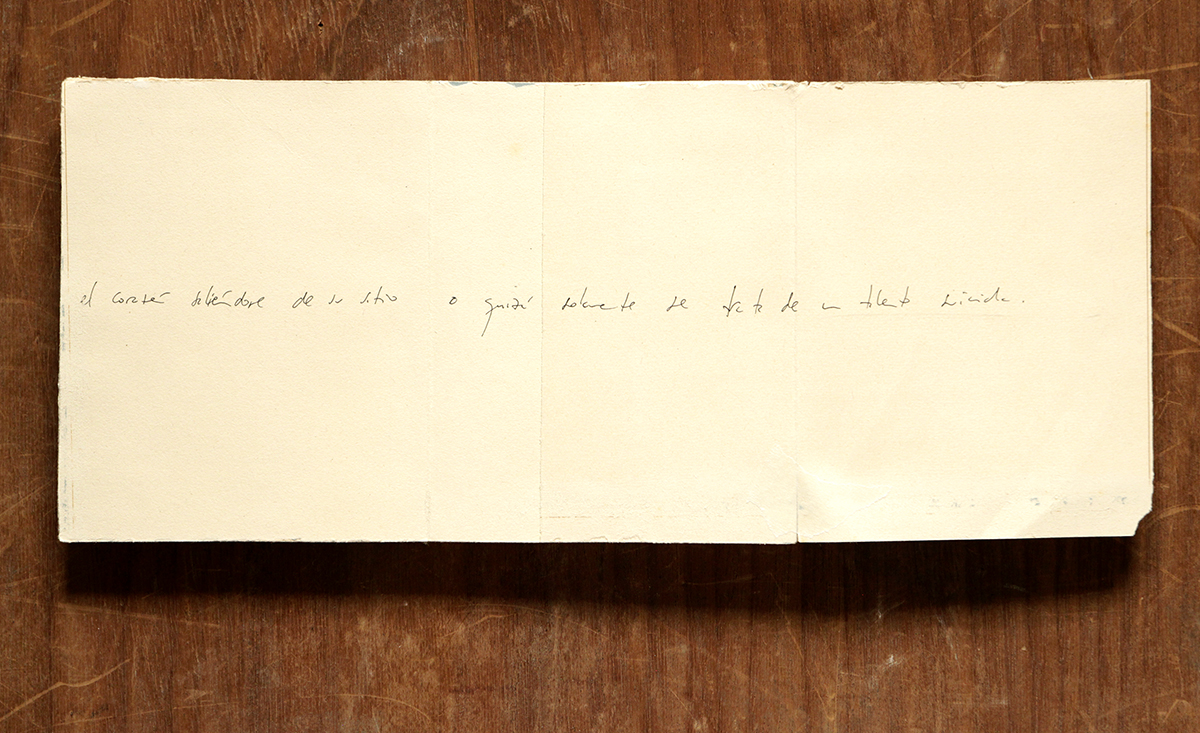 el corazón saliéndose de su sitio o quizá solamente se trata de un talento suicida.